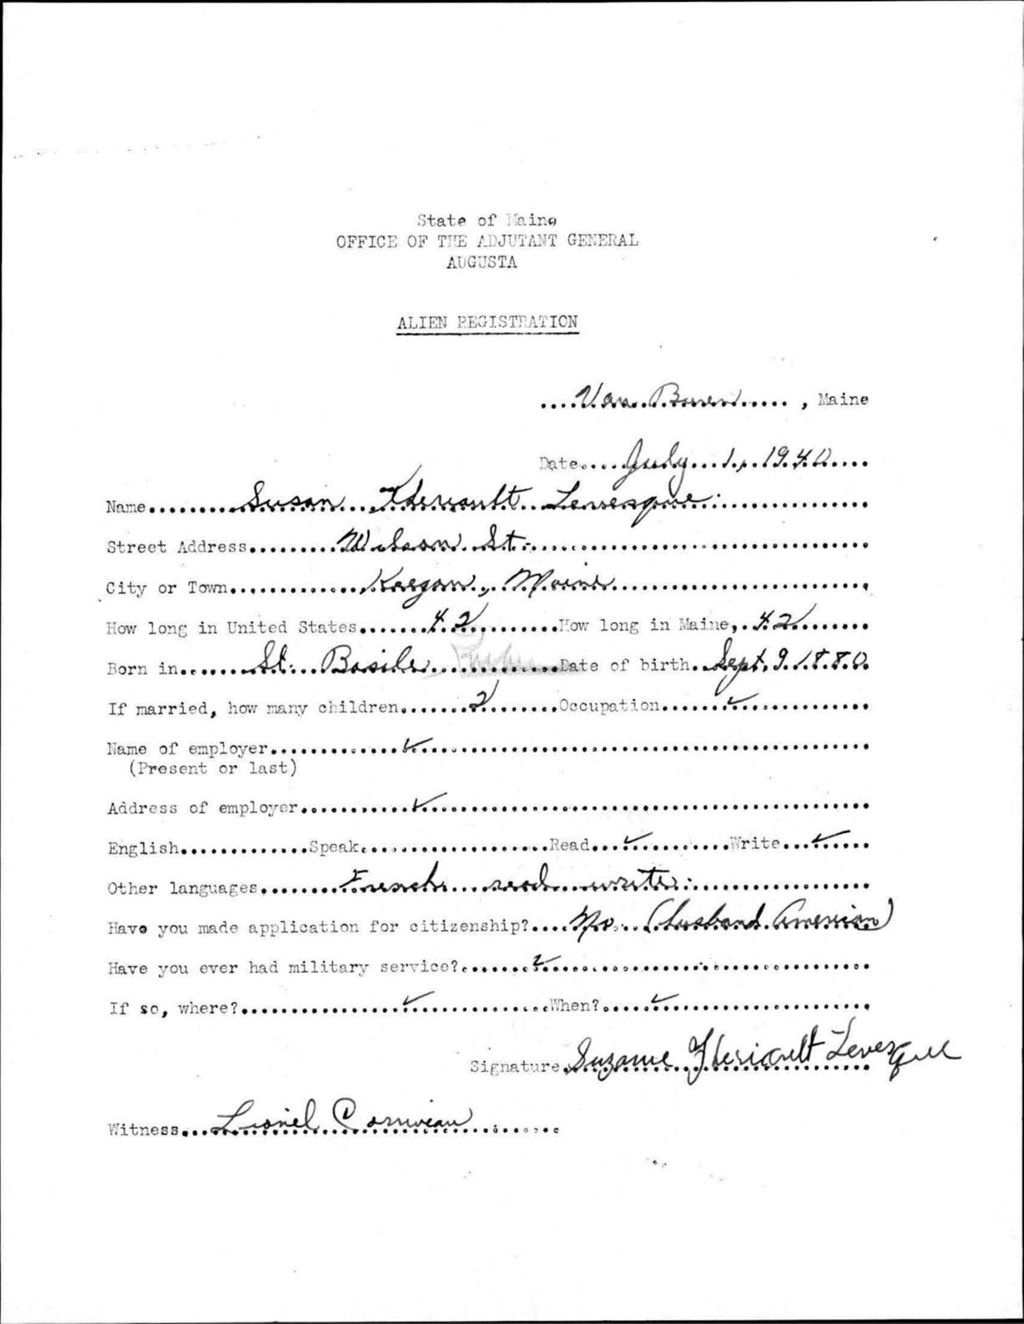 State of Maine
OFFICE OF THE ADJUTANT GENERAL
AUGUSTA
ALIEN REGISTRATION
Van Buren, Maine
Date July 1, 1940
Name Susan Theriault Levesque
Street Address Wilson St.
City or Town Keegan, Maine
How long in United States 42 How long in Maine, 42
Born in St. Basile Date of birth Sept. 9 1880
If married, how many children 2 Occupation ✓
Name of employer ✓
(Present or last)
Address of employer ✓
English Speak Read ✓ Write ✓
Other languages French read write
Have you made application for citizenship? No. (husband American)
Have you ever had military service? ✓
If so, where? ✓ When? ✓
Signature Suzanne Theriault Levesque
Witness Lionel Corriveau